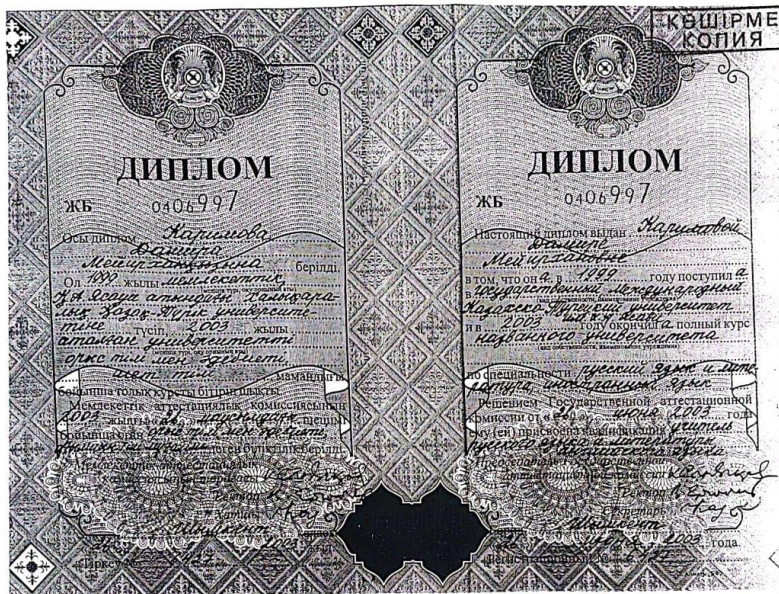 КӨШІРМЕ
КОПИЯ
ДИПЛОМ
ЖБ 0406997
Осы диплом Каримова
Дамира
берілді
Ол 1999 жылы мемлекеттік
Қ.А. Ясауи атындағы халықара-
лық Қазақ-Түрік университе-
тіне түсіп, 2003 жылы
аталған университетті
орыс тілі мен әдебиеті
шет тілі мамандығы
бойынша толық курсты бітіріп шықты.
Мемлекеттік аттестациялық комиссиясының
2003 жылғы шешімі
бойынша оған
біліктілігі берілді
Мемлекеттік аттестациялық
комиссияның төрағасы
Ректор
Хатшы
Шымкент
2003
Тіркеу №
ДИПЛОМ
ЖБ 0406997
Настоящий диплом выдан Каримовой
Дамире
в том, что он а в 1999 году поступил а
в Государственный Международный
Казахско-Турецкий университет
и в 2003 году окончил а полный курс
названного университета
по специальности русский язык и лите-
ратура, иностранный язык
Решением Государственной аттестационной
комиссии от июня 2003 года
ему (ей) присвоена квалификация учитель
русского языка и литературы,
языка
Председатель Государственной
аттестационной комиссии
Ректор
Секретарь
Шымкент
2003 года.
Регистрационный №